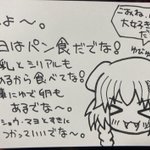 よ〜。
日はパン食だでな!
乳とシリアルも
あるから食べてな!
にゆで卵も
あるでな〜。
ショウ・マヨとすきに
つかっていいでな〜。